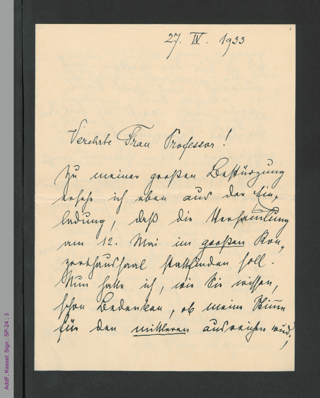 27. IV. 1933
Verehrte Frau Professor!
Zu meiner großen Bestürzung
ersehe ich eben aus der Ein-
ladung, daß die Versammlung
am 12. Mai im großen Kon-
zerthaussaal stattfinden soll.
Nun hatte ich, wie Sie wissen,
schon Bedenken, ob meine Stimme
für den mittleren ausreichen wird,
AddF, Kassel, Sign.: SP-24 ; 3